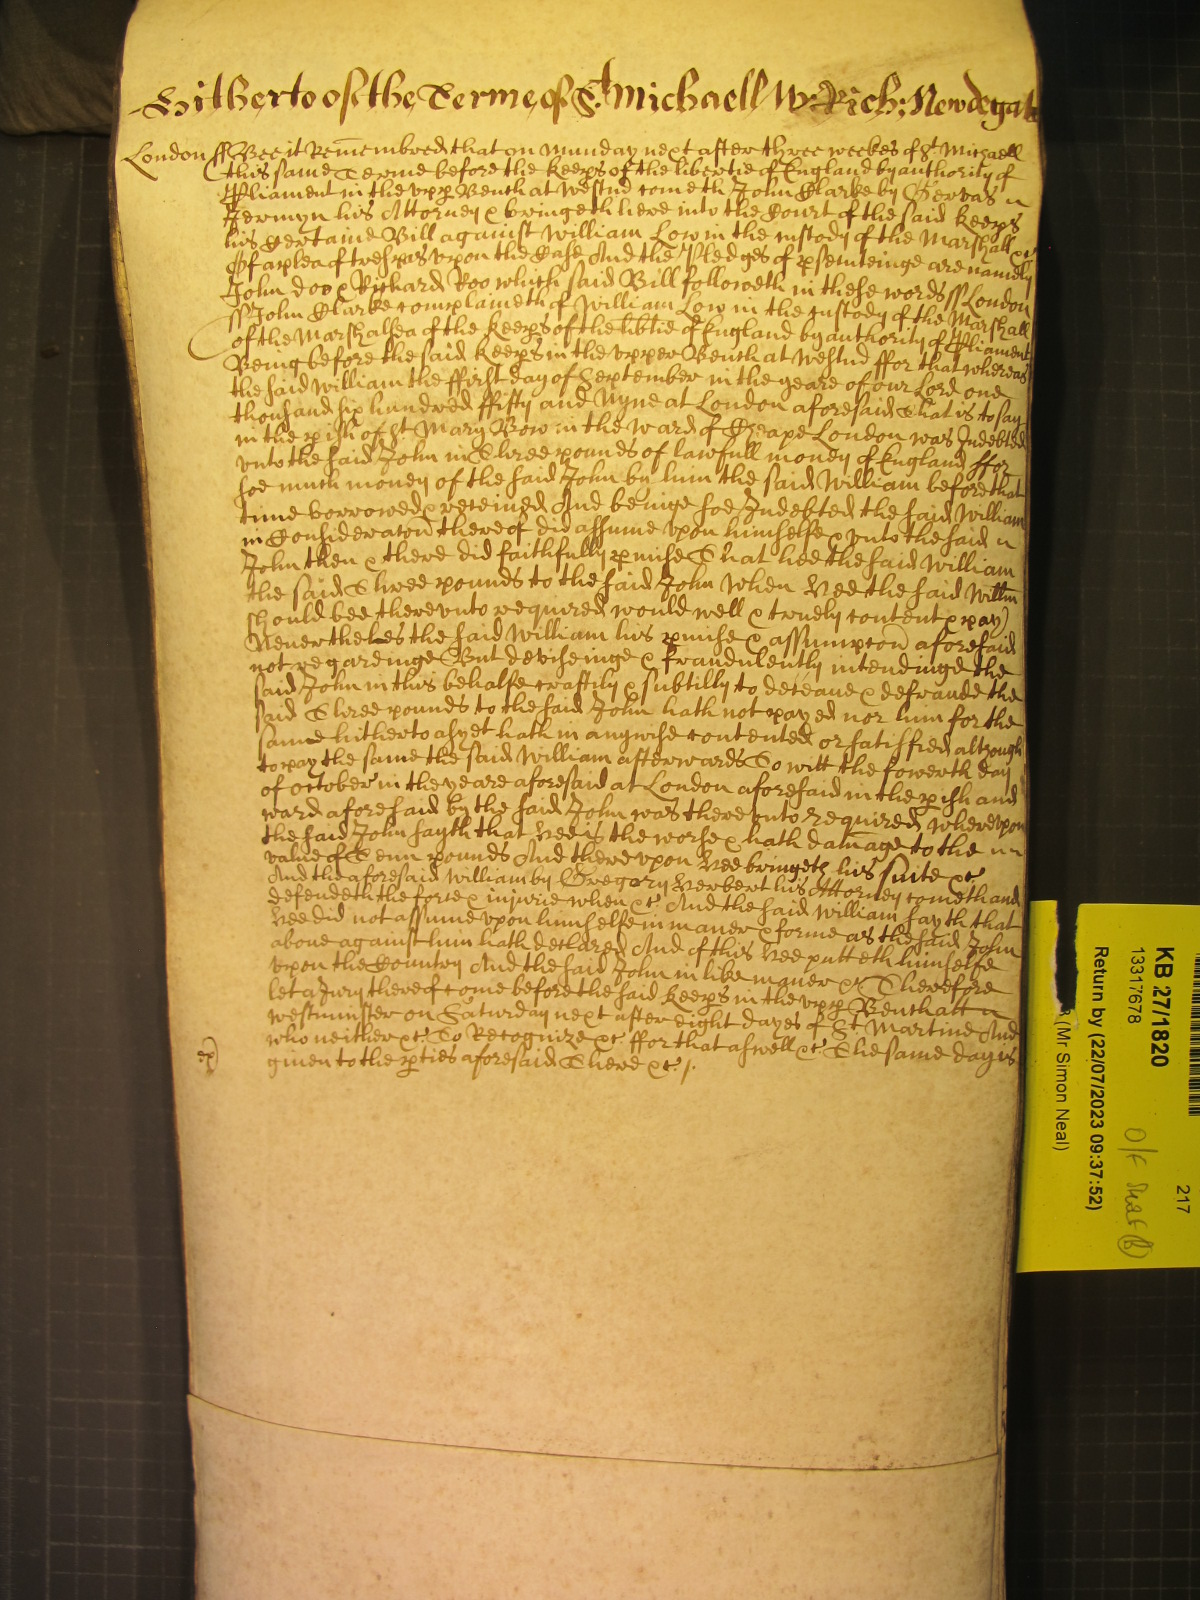 Hitherto of the Terme of St. Michaell W: Rich: Newdegate
London ss Bee it Remembred that on Munday next after three weekes of St Michaell
this same Terme before the keeps of the libertie of England by authority of
Pliament in the upp Bench at Westmr cometh John Clarke by Gervas
Jermyn his Attorney & bringeth here into the Court of the said keeps
his Certaine Bill against William Low in the custody of the Marshall &c
Of a plea of trespas upon the Case And the Pledges of psecuteinge are namely
John doo & Richard Roo which said Bill followeth in these words ss London
ss John Clarke complaineth of William Low in the custody of the Marshall
of the Marshalsea of the keeps of the libtie of England by authority of Pliament
Being before the said keeps in the upper Bench at Westmr ffor that whereas
the said William the ffirst day of September in the yeare of our Lord one
thousand six hundred ffifty and Nyne at London aforesaid That is to say
in the pish of St Mary Bow in the Ward of Cheape London was Indebted
unto the said John in Three pounds of lawfull money of England ffor
soe much money of the said John by him the said William before that
time borrowed & receined And beinge soe Indebted the said William
in Consideracon thereof did assume upon himselfe & unto the said
John then & there did faithfully pmise That hee the said William
the said Three pounds to the said John when hee the said Willm
should bee thereunto required would well & truely content & pay
Neverthelesse the said William his pmise & assumpcon aforesaid
not regardinge But deviseinge & fraudulently intendinge the
said John in this behalfe craftily & subtilly to deceaue & defraude the
said Three pounds to the said John hath not payed nor him for the
same hitherto as yet hath in anywise contented or satisfied although
to pay the same the said William afterwards To witt the fowerth day
of october in the yeare aforesaid at London aforesaid in the pish and
ward aforesaid by the said John was thereunto required whereupon
the said John sayth that hee is the worse & hath damage to the
value of Tenn pounds And thereupon hee bringeth his suite &c
And the aforesaid William by Gregory Herbert his Attorney cometh and
defendeth the force & injurie when &c And the said William sayth that
hee did not assume upon himselfe in maner & forme as the said John
aboue against him hath declared And of this hee putteth himselfe
upon the Country And the said John in like maner &c Therefore
let a Jury thereof come before the said keeps in the upp Bench att
Westminster on Saturday next after eight dayes of St Martine And
who neither &c To Recognize &c ffor that aswell &c The same day is
giuen to the pties aforesaid There &c /.
KB 27/1820
13317678
217
Return by (22/07/2023 09:37:52)
(Mr Simon Neal)